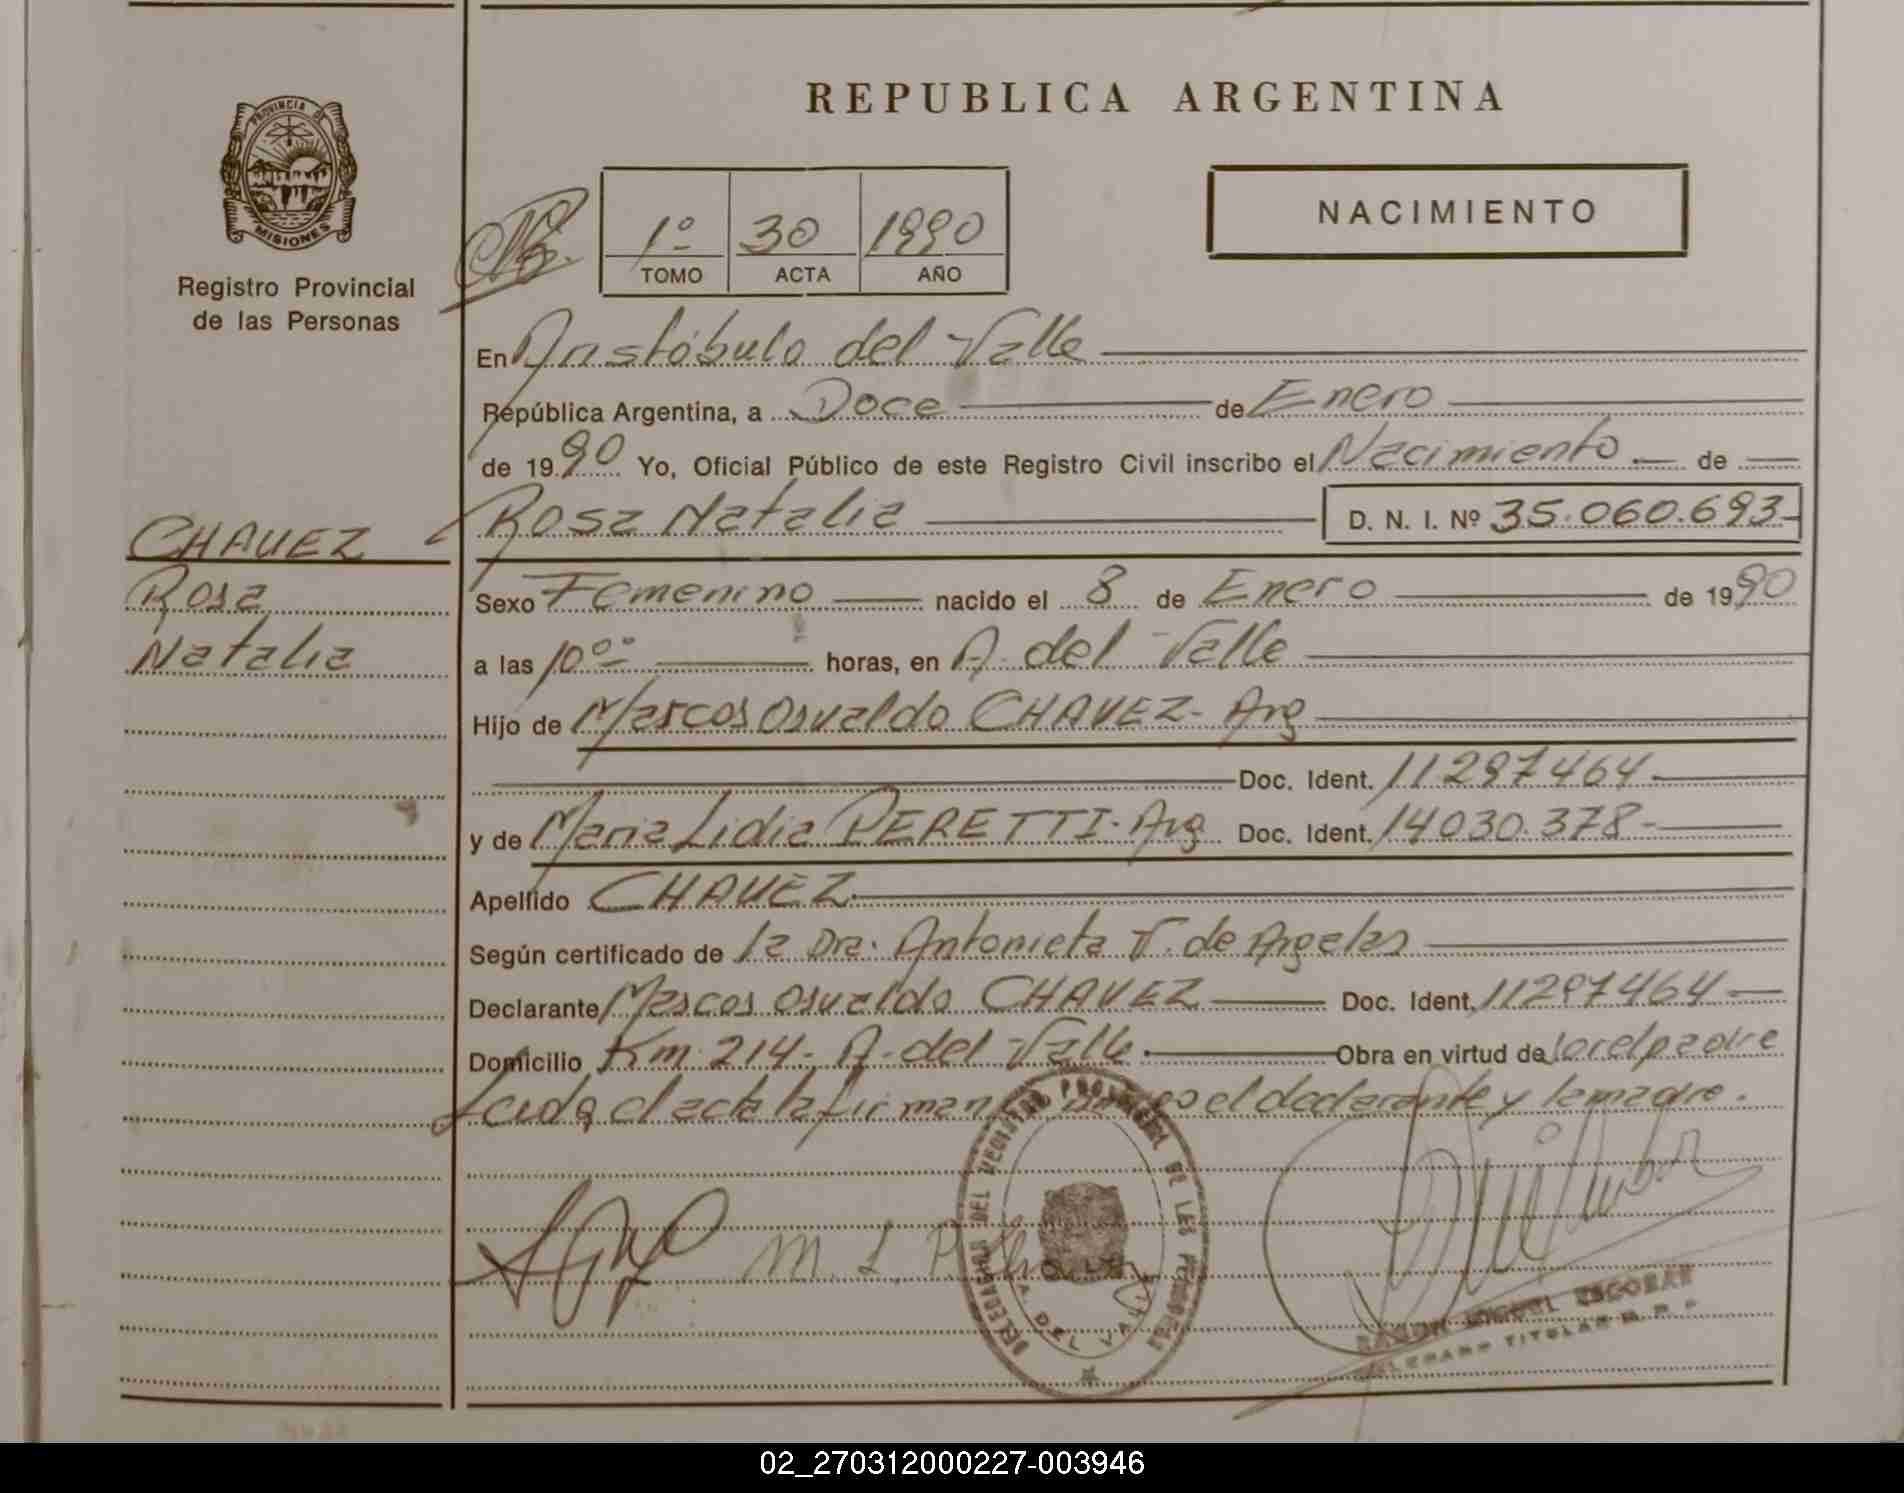 PROVINCIA DE
MISIONES
Registro Provincial
de las Personas
REPUBLICA ARGENTINA
1º 30 1990
TOMO ACTA AÑO
NACIMIENTO
En Aristóbulo del Valle
República Argentina, a Doce de Enero
de 1990 Yo, Oficial Público de este Registro Civil inscribo el Nacimiento de
Rosa Natalia D. N. I. Nº 35.060.693-
CHAVEZ
Rosa
Natalia
Sexo Femenino nacido el 8 de Enero de 1990
a las 10ºº horas, en A. del Valle
Hijo de Marcos Osvaldo CHAVEZ- Arg
Doc. Ident. 11297464
y de Maria Lidia PERETTI- Arg Doc. Ident. 14030.378-
Apellido CHAVEZ
Según certificado de la Dra. Antonieta T. de Argelas
Declarante Marcos Osvaldo CHAVEZ Doc. Ident. 11297464
Domicilio Km 214- A. del Valle Obra en virtud de lo el padre
Leida el acta la firman el declarante y la madre.
M. L. P
DELEGACION DEL REGISTRO PROVINCIAL DE LAS PERSONAS
DEL VALLE
RAMON MIGUEL ESCOBAR
DELEGADO TITULAR
02_270312000227-003946